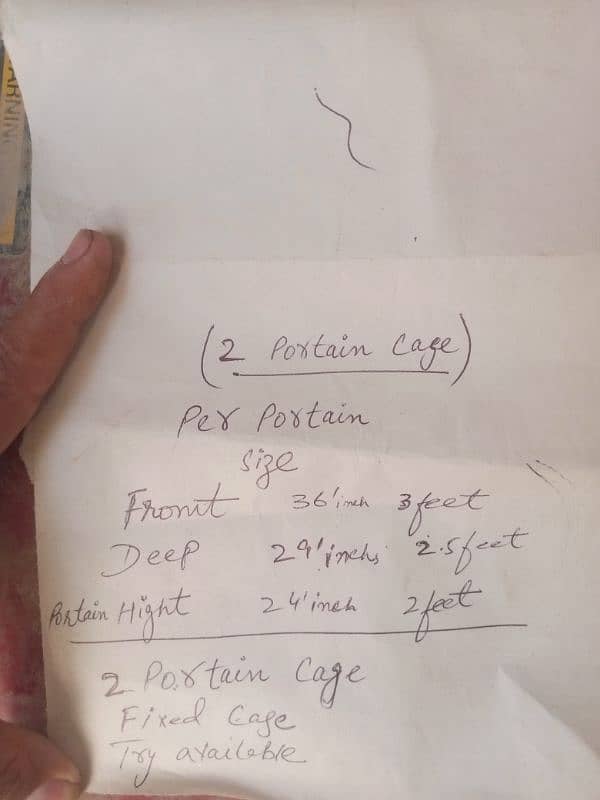 ARNING
(2 Portain Cage)
Per Portain
Size
Front 36'inch 3feet
Deep 29'inchs 2.5feet
Portain Hight 24'inch 2feet
2 Portain Cage
Fixed Cage
Try available